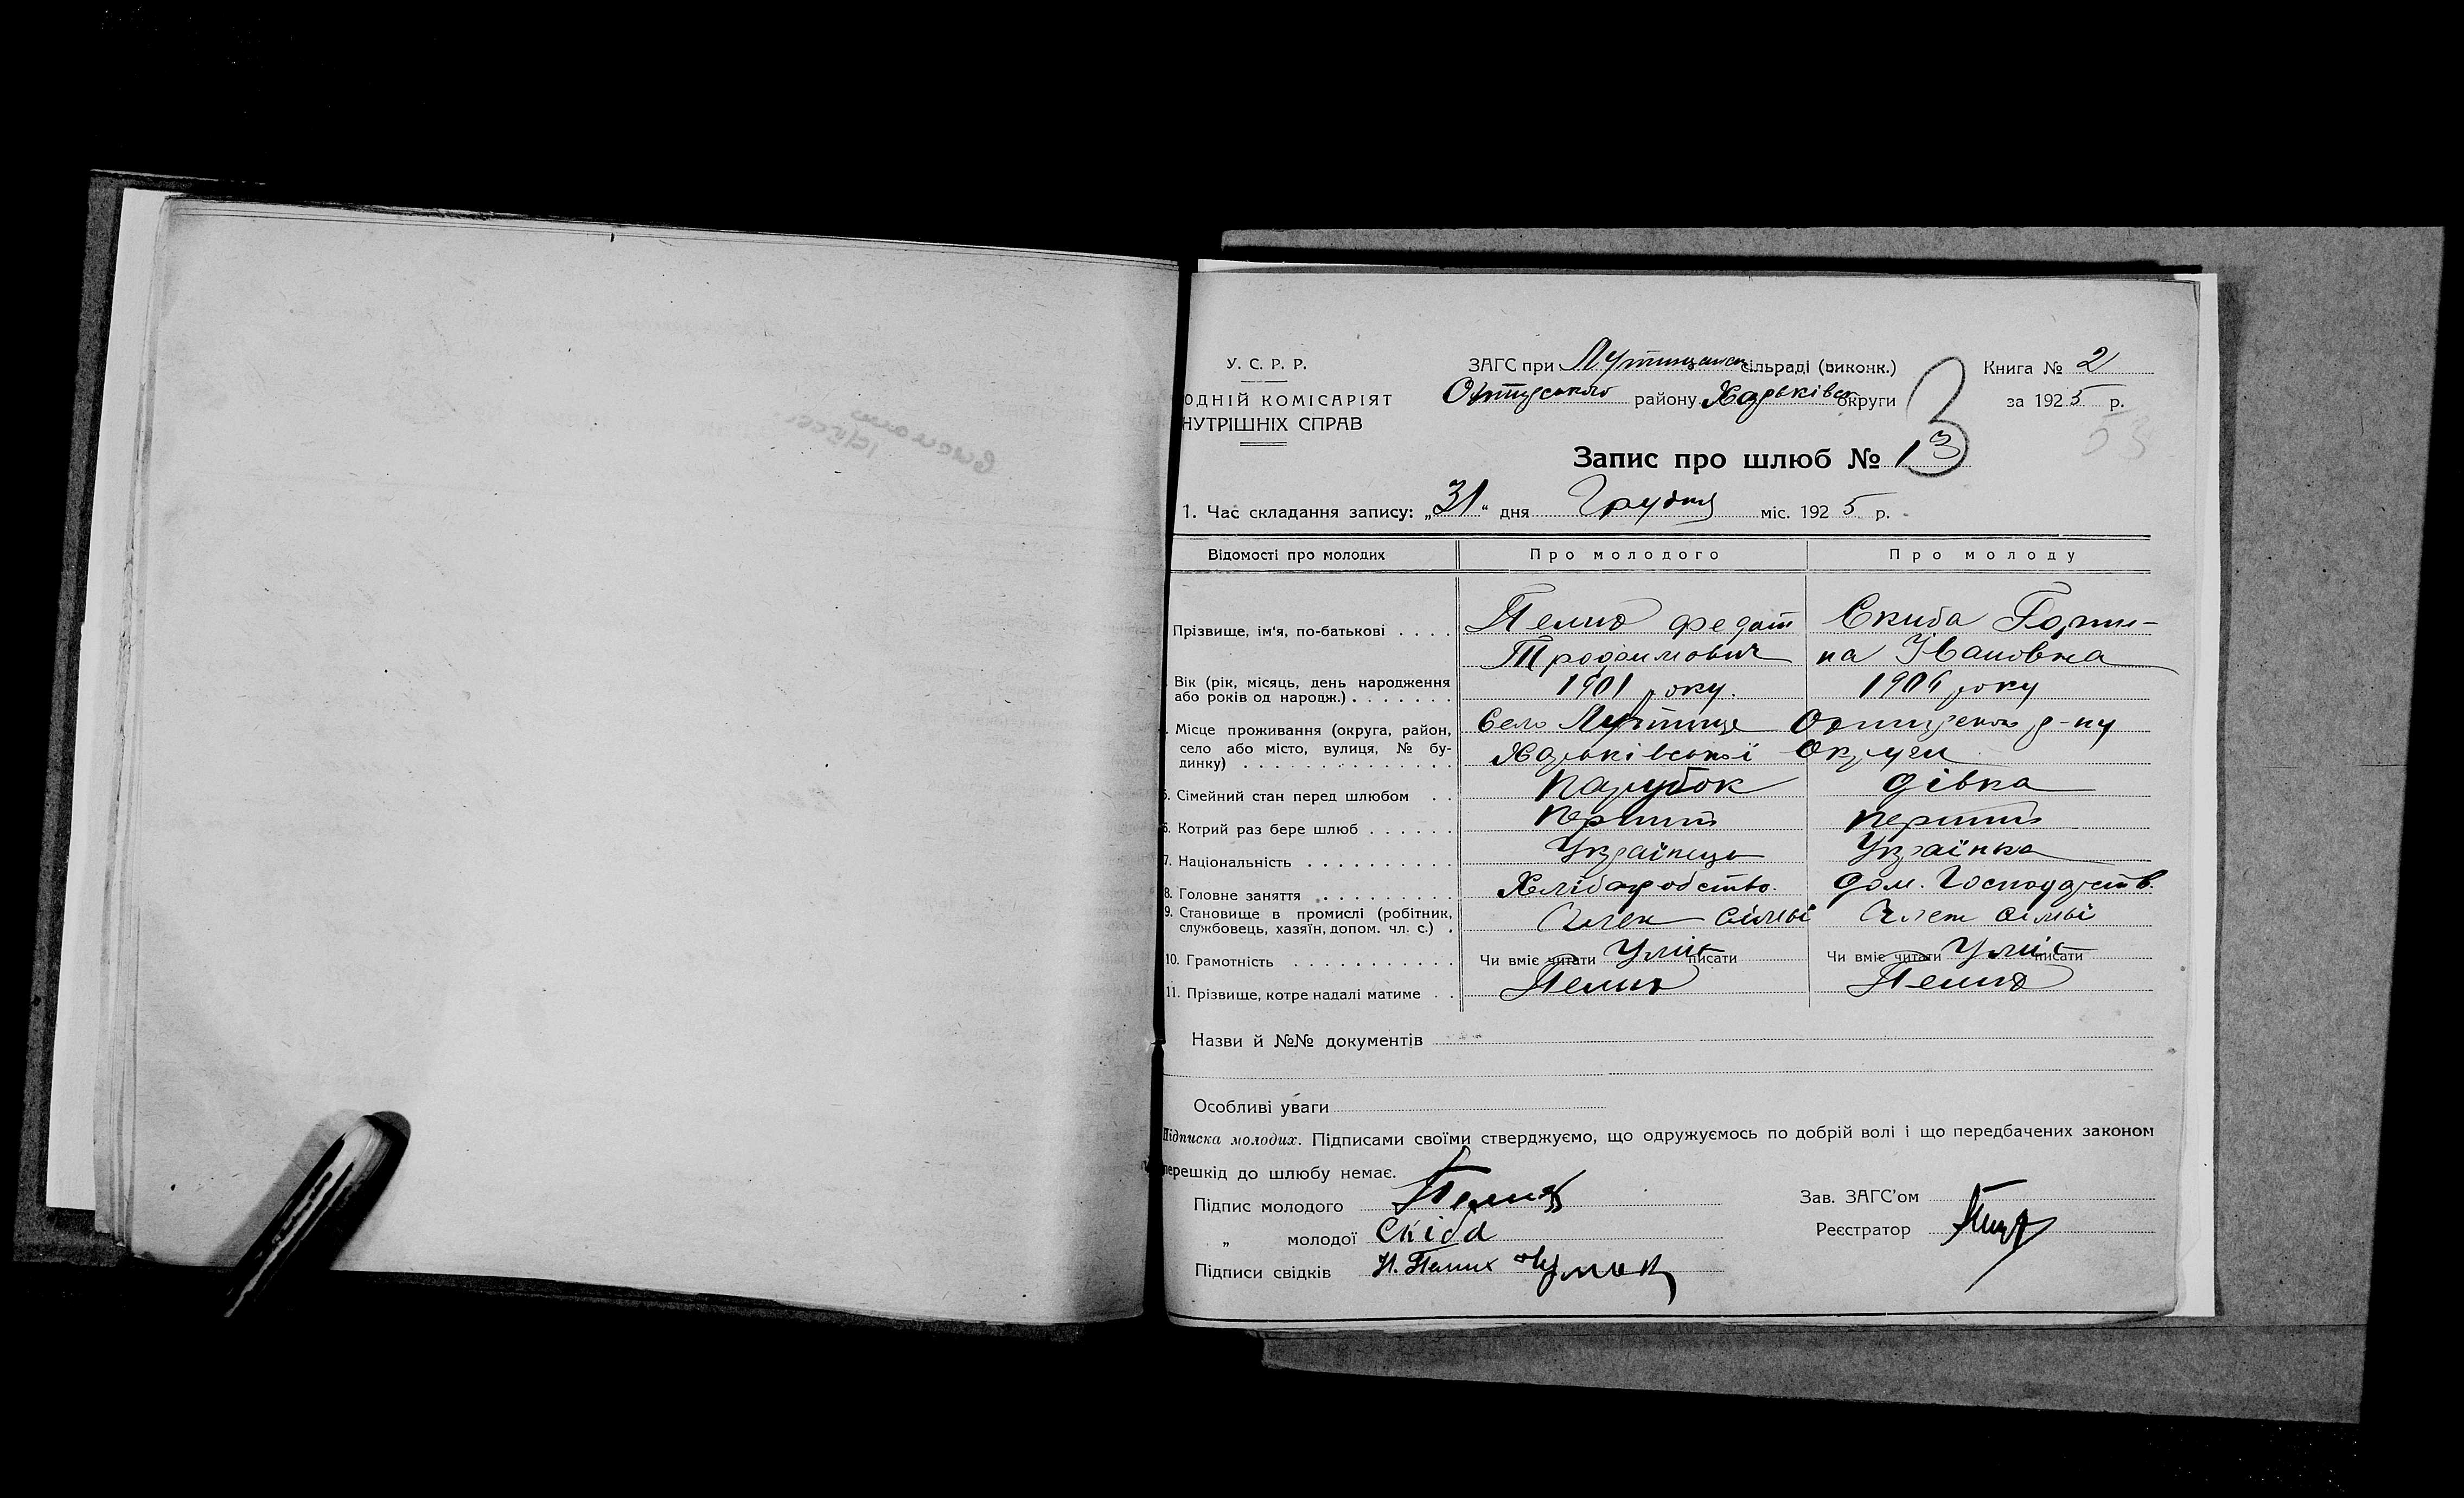 У. С. Р. Р.
ОДНІЙ КОМІСАРІЯТ
НУТРІШНІХ СПРАВ
ЗАГС при Лутищанск сільраді (виконк.)
району Харьківс округи
Книга № 2
за 1925 р.
53
3
Запис про шлюб № 13
1. Час складання запису: „31“ дня Грудня міс. 1925 р.
Відомості про молодих Про молодого Про молоду
Прізвище, ім'я, по-батькові . . . . Пелих Федот Скиба Горпи-
Трохимович на Івановна
Вік (рік, місяць, день народження
або років од народж.) . . . . . . . 1901 року. 1906 року
Місце проживання (округа, район, Село Лутище р-ну
село або місто, вулиця, № бу- Харьківської Округи
динку) . . . . . . . . . . . . . .
5. Сімейний стан перед шлюбом . . Парубок дівка
6. Котрий раз бере шлюб . . . . . . перший перший
7. Національність . . . . . . . . . . . Українець Українка
8. Головне заняття . . . . . . . . . Хлібаробство. дом. Господарств.
9. Становище в промислі (робітник,
службовець, хазяїн, допом. чл. с.) . Член сімьї Член сімьї
10. Грамотність . . . . . . . . . . . Чи вміє читати Уміє писати Чи вміє читати Уміє писати
11. Прізвище, котре надалі матиме . . Пелих Пелих
Назви й №№ документів
Особливі уваги
Підписка молодих. Підписами своїми стверджуємо, що одружуємось по добрій волі і що передбачених законом
перешкід до шлюбу немає.
Підпис молодого Пелих
„ молодої Скіба
Підписи свідків Н. Пелих Чумак
Зав. ЗАГС'ом
Реєстратор